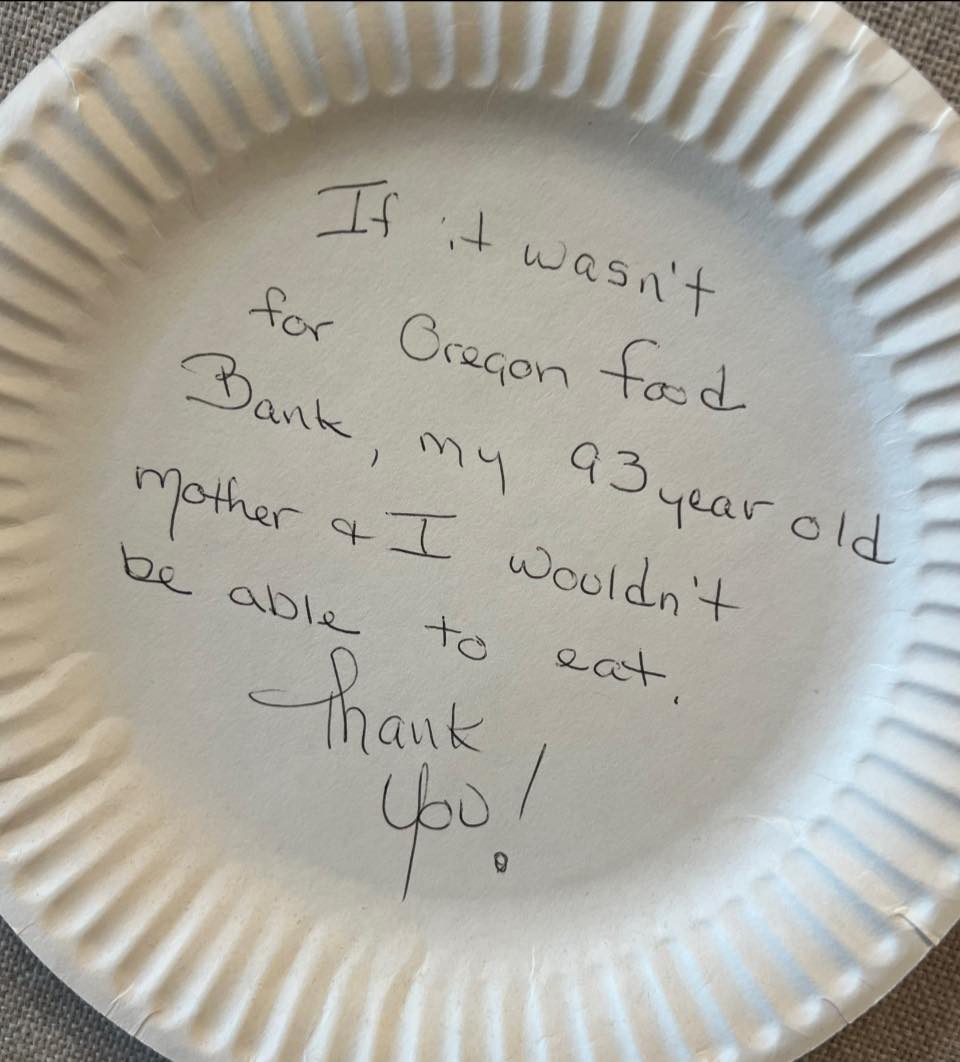 If it wasn't
for Oregon food
Bank, my 93 year old
mother & I wouldn't
be able to eat.
Thank
you!